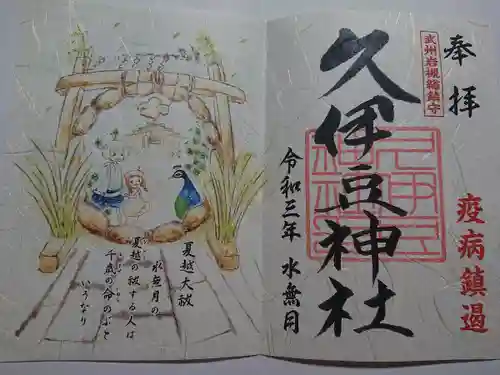 奉拝
武州岩槻総鎮守
久伊豆神社
疫病鎮遏
令和三年 水無月
夏越大祓
水無月の
夏越の祓する人は
千歳の命のぶと
いうなり